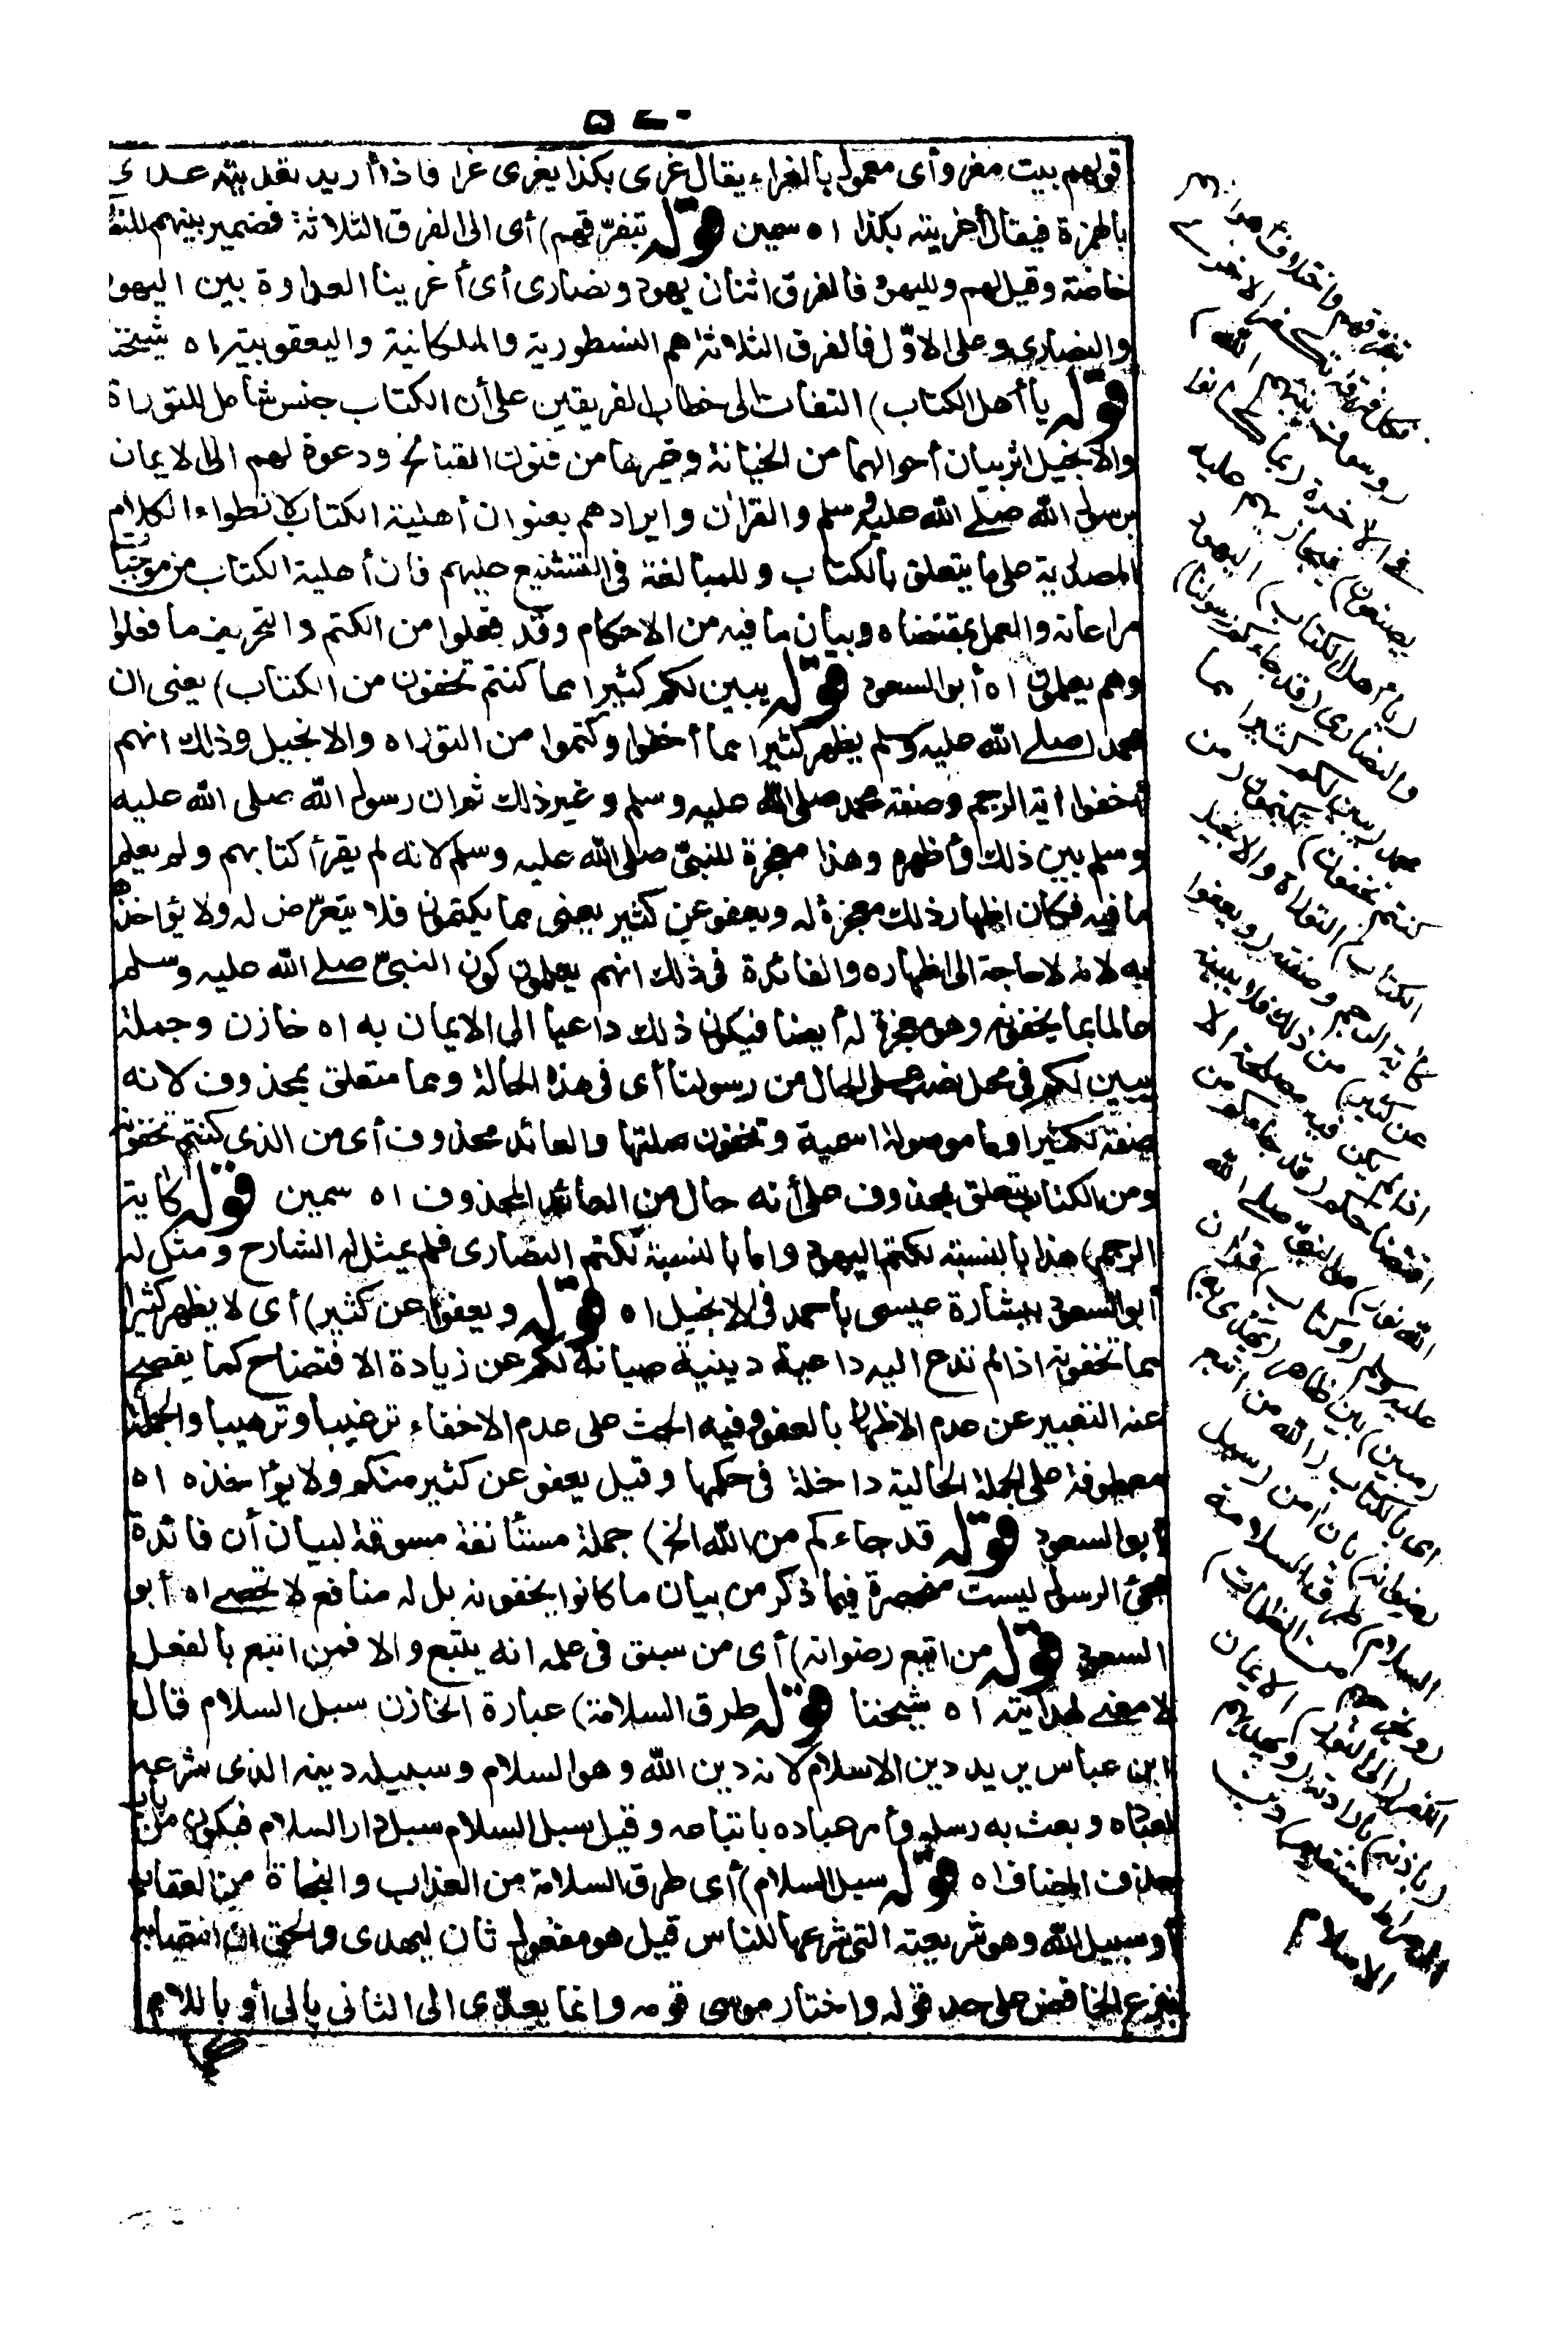 قولهم بيت مغروأى معمول بالغراء يقال غرى بكذا يغرى غرا فاذا أريد تعديته عدى
بالهمزة فيقال أغريته بكذا اه سمين قوله بتفرّقهم) أى الى الفرق الثلاثة فضمير بينهم
خاصة وقيل لهم ولليهود فالفرق اثنان يهود ونصارى أى أغرينا العداوة بين اليهود
والنصارى وعلى الاوّل فالفرق الثلاثة هم النسطورية والملكانية واليعقوبية اه شيخنا
قوله يا أهل الكتاب) التفات الى خطاب الفريقين على أن الكتاب جنس شامل للتوراة
والانجيل اثر بيان أحوالهما من الخيانة وغيرها من فنون القبائح ودعوة لهم الى الايمان
برسول الله صلى الله عليه وسلم والقران وايرادهم بعنوان أهلية الكتاب لانطواء الكلام
المصدر به على ما يتعلق بالكتاب وللمبالغة فى التشنيع عليهم فان أهلية الكتاب من موجبات
مراعاته والعمل بمقتضاه وبيان ما فيه من الاحكام وقد فعلوا من الكتم والتحريف ما فعلوا
وهم يعلمون اه أبو السعود قوله يبين لكم كثيرا مما كنتم تخفون من الكتاب) يعنى ان
محمدا صلى الله عليه وسلم يظهر كثيرا مما أخفوا وكتموا من التوراه والانجيل وذلك انهم
أخفوا اية الرجم وصفة محمد صلى الله عليه وسلم وغير ذلك ثم ان رسول الله صلى الله عليه
وسلم بين ذلك وأظهره وهذا معجزة للنبىّ صلى الله عليه وسلم لانه لم يقرأ كتابهم ولم يعلم
ما فيه فكان اظهار ذلك معجزة له ويعفو عن كثير يعنى مما يكتمون فلا يتعرّض له ولا يؤاخذ
به لانه لا حاجة الى اظهاره والفائدة فى ذلك انهم يعلمون كون النبىّ صلى الله عليه وسلم
عالما بما يخفونه وهو معجزة له أيضا فيكون ذلك داعيا الى الايمان به اه خازن وجملة
يبين لكم فى محل نصب على الحال من رسولنا أى فى هذه الحالة ومما متعلق بمحذوف لانه
صفة لكثيرا وما موصولة اسمية وتخفون صلتها والعائد محذوف أى من الذى كنتم تخفونه
ومن الكتاب متعلق بمحذوف على أنه حال من العائد المحذوف اه سمين قوله كاية
الرجم) هذا بالنسبة لكتم اليهود واما بالنسبة لكتم النصارى فلم يمثل له الشارح ومثل له
أبو السعود ببشارة عيسى بأحمد فى الانجيل اه قوله ويعفوا عن كثير) أى لا يظهر كثيرا
مما تخفونه اذا لم تدع اليه داعية دينية صيانة لكم عن زيادة الافتضاح كما يفصح
عنه التعبير عن عدم الاظهار بالعفو وفيه الحث على عدم الاخفاء ترغيبا وترهيبا والجملة
معطوفة على الجملة الحالية داخلة فى حكمها وقيل يعفو عن كثير منكم ولا يؤاخذه اه
أبو السعود قوله قد جاءكم من الله الخ) جملة مستأنفة مسوقة لبيان أن فائدة
مجئ الرسول ليست منحصرة فيما ذكر من بيان ما كانوا يخفونه بل له منافع لا تحصى اه أبو
السعود قوله من اتبع رضوانه) أى من سبق فى علمه انه يتبع والا فمن اتبع بالفعل
لا معنى لهدايته اه شيخنا قوله طرق السلامة) عبارة الخازن سبل السلام قال
ابن عباس يريد دين الاسلام لانه دين الله وهو السلام وسبيله دينه الذى شرعه
لعباده وبعث به رسله وأمر عباده باتباعه وقيل سبل السلام سبل دار السلام فيكون من باب
حذف المضاف اه قوله سبل السلام) أى طرق السلامة من العذاب والنجاة من العقاب
أو سبيل الله وهو شريعته التى شرعها للناس قيل هو مفعول ثان ليهدى والحق ان انتصابه
بنزع الخافض على حد قوله واختار موسى قومه وانما يعدّى الى الثانى بالى أو باللام
كل فرقة تكفر الاخرى
يصنعون) فيجازيهم عليه
(يا أهل الكتاب) اليهود
والنصارى (قد جاءكم رسولنا)
محمد (يبين لكم كثيرا مما
كنتم تخفون) تكتمون من
الكتاب) التوراة والانجيل
كأية الرجم وصفته (ويعفوا
عن كثير) من ذلك فلا يبينه
اذا لم يكن فيه مصلحة الا
افتضاحكم (قد جاءكم من
الله نور) هو النبى صلى الله
عليه وسلم (وكتاب) قران
(مبين) بين ظاهر (يهدى به)
أى بالكتاب (الله من اتبع
رضوانه) بان امن (سبل
السلام) طرق السلامة
(ويخرجهم من الظلمات)
الكفر (الى النور) الايمان
(باذنه) بارادته (ويهديهم
الى صراط مستقيم) دين
الاسلام